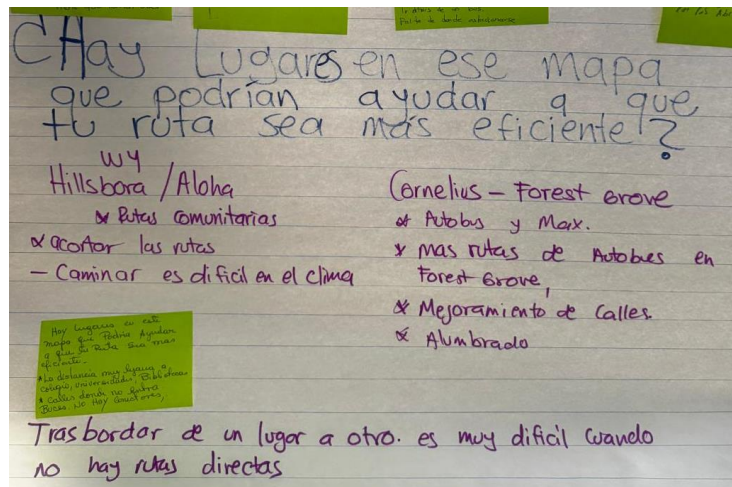 Falta de donde estacionarse
¿Hay Lugares en ese mapa
que podrían ayudar a que
tu ruta sea más eficiente?
WY
Hillsbora / Aloha
* Rutas Comunitarias
* acortar las rutas
- Caminar es dificil en el clima
Cornelius - Forest Grove
* Autobus y Max.
* mas rutas de Autobues en
Forest Grove,
* Mejoramiento de Calles.
* Alumbrado
Hay lugares en este
mapa que Podria Ayudar
a que su Ruta Sea mas
eficiente.
* La distancia muy lejana a
Colegio, universidades, Bibliotecas
* Calles donde no entra
Buses. No Hay Conectores,
Trasbordar de un lugar a otro. es muy dificil cuando
no hay rutas directas